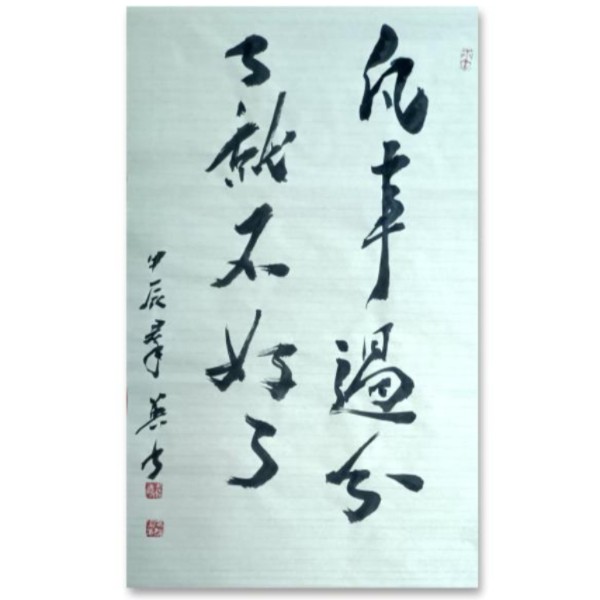 凡事過分
了就不好了
甲辰羣英書